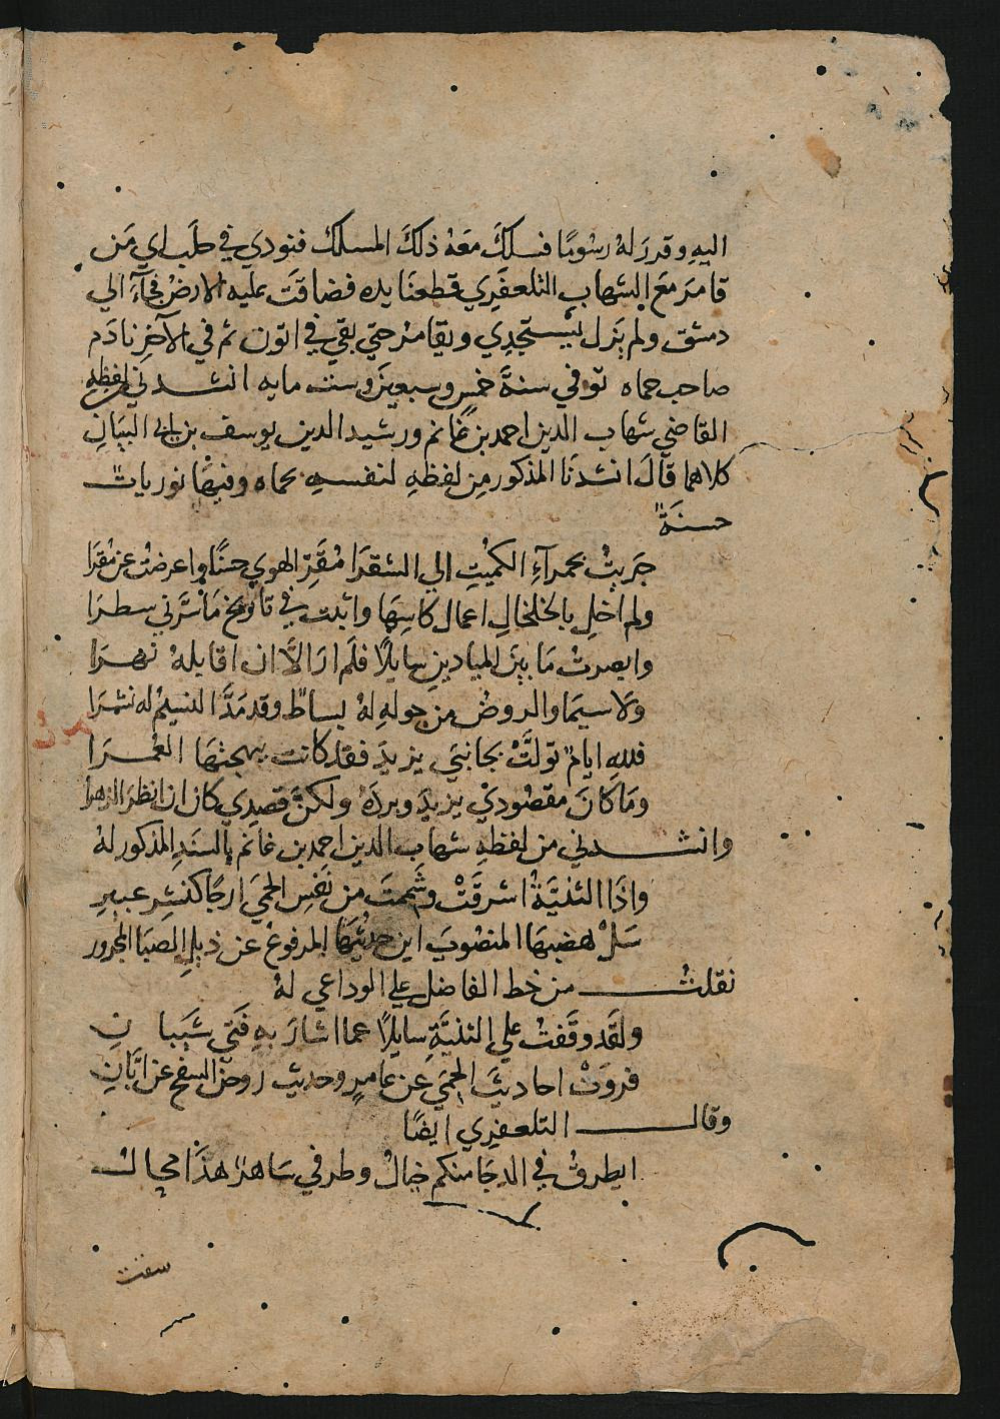 اليهِ وقررَ لهُ رسُومًا فسلكَ معَهُ ذلكَ المسلكَ فنودي في حلَب اي مَن
قامرَ معَ الشهاب التلعفَرِي قطعنَا يده فضاقَت عليه الارضُ فجآءَ الي
دمشق ولم يَزل يَستجدِي ويقامرُ حتي بقي في اتون ثم في الآخرِ نادَم
صاحب حماه توفي سنةَ خمسٍ وسبعينَ وست مايه انشدني لفظهِ
القاضي شهاب الدين احمد بن غانم ورشيد الدين يوسف بن ابي البيَانِ
كلاهما قالَ انشدنَا المذكور مِن لفظهِ لنفسهِ بحماه وفيهَا توريات
حسنَةٌ
جَريتُ بحمرآءِ الكُميتِ الي الشقرَا مُقَرّ الهوي حنًّا واعرضتُ عن مُقرَا
ولم اخلِ بالخلخالِ اعمال كاسِهَا واثبت في تاريخ مَا سَرَّني سطرَا
وابصرتُ مَا بينَ الميادينِ سايلًا فلَم ارَ الاَّ ان اقابلهُ نهرَا
ولا سيمَا والروضُ من حولهِ لهُ بساطٌ وقد مَدَّ النسيمُ له نشرَا
فللهِ ايامٌ تولَّتْ بجانبَي يزيدَ فقد كانت ببهجتهَا العُمرَا
ومَا كانَ مقصُودي يزيدَ وبردَهُ ولكنَّ قصدِي كان ان انظرَ الزهرا
وانشدني من لفظهِ شهاب الدين احمد بن غانم بالسنَدِ المذكور لهُ
واذَا الثنيَّةُ اشرقَتْ وشَممتَ من نفَسِ الحمَي ارجًا كنشرِ عبيرِ
سَلْ هضبهَا المنصُوبَ اين حديثهَا المرفوعُ عن ذيلِ الصبَا المجرور
نقلتُ من خط الفاضل علي الوداعي لهُ
ولقَد وقَفتُ علي الثنيَّةِ سايلًا عما اشارَ بهِ فَتَي شَيبانِ
فروَتْ احاديثَ الحِمَي عن عامرٍ وحديث روض السفح عن ابَّانِ
وقال التلعفرِي ايضًا
ايطرقُ في الدجَا منكم خيالُ وطرفي سَاهرٌ هذَا محالُ